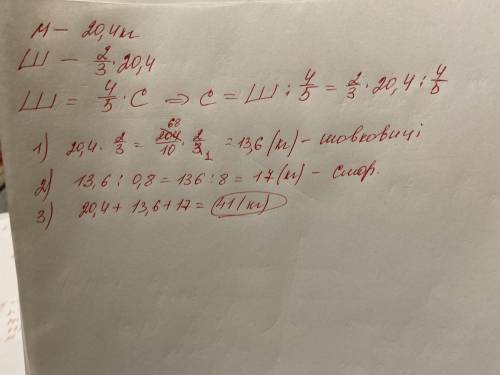 М – 20,4кг
Ш – 2/3 · 20,4
Ш = 4/5 · С ⇒ С = Ш : 4/5 = 2/3 · 20,4 : 4/5
1) 20,4 · 2/3 = 68 204/10 · 2/3 1 = 13,6 (кг) – шовковиці
2) 13,6 : 0,8 = 136 : 8 = 17 (кг) – смор.
3) 20,4 + 13,6 + 17 = 41 (кг)